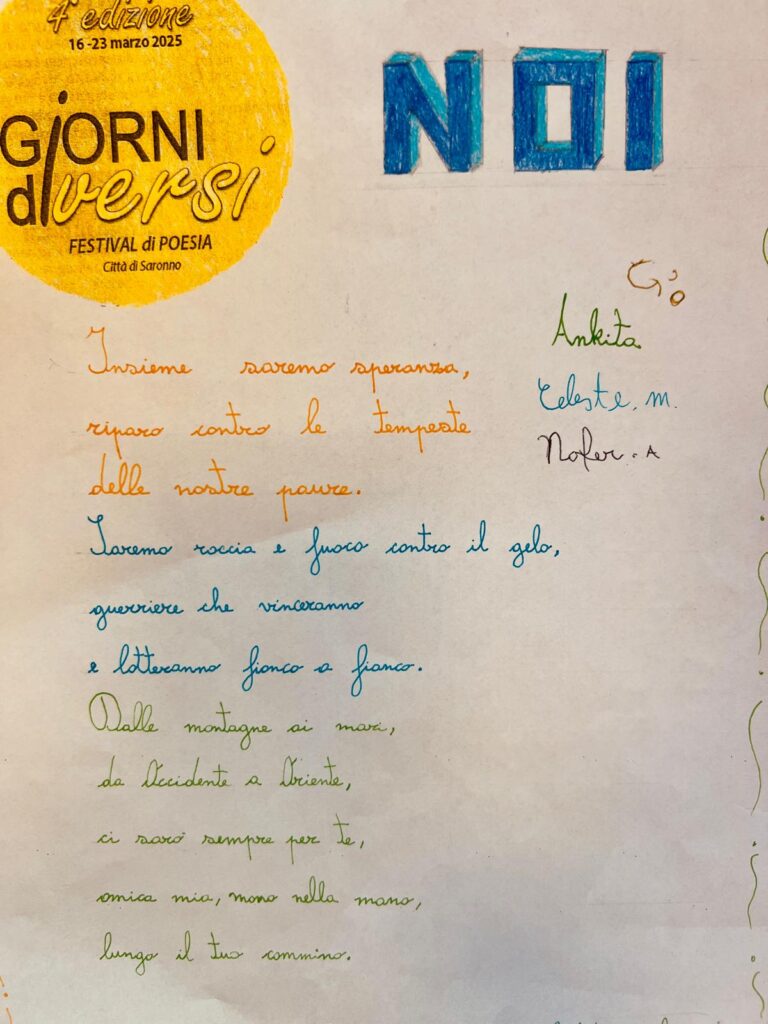 4ª edizione
16-23 marzo 2025
GiORNI
diversi
FESTIVAL di POESIA
Città di Saronno
NOI
Ankita
Celeste. M.
Nofer. A
Insieme saremo speranza,
riparo contro le tempeste
delle nostre paure.
Saremo roccia e fuoco contro il gelo,
guerriere che vinceranno
e lotteranno fianco a fianco.
Dalle montagne ai mari,
da Occidente a Oriente,
ci sarò sempre per te,
amica mia, mano nella mano,
lungo il tuo cammino.